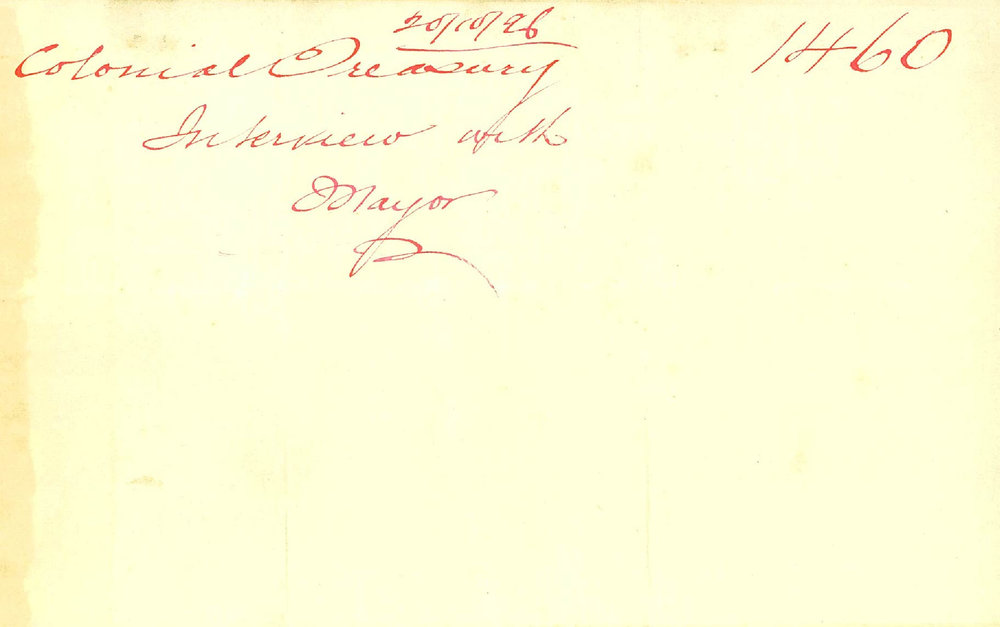 20/10/96
Colonial Treasury
1460
Interview with
Mayor